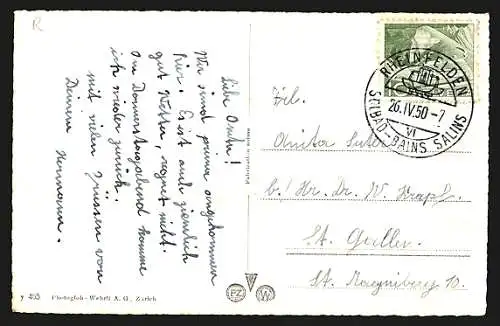 R
Liebe Anita!
Wir sind prima angekommen
hier. Es ist auch ziemlich
gut Wetter, regnet nicht.
Am Donnerstagabend komme
ich wieder zurück.
mit vielen Grüssen von
Deinem Hermann.
RHEINFELDEN
26.IV.50-7
VI
SOLBAD-BAINS SALINS
Frl.
Anita Suter
b/ Hr. Dr. W.
St. Gallen
St. Magniberg 10.
7 463 Photoglob-Wehrli A. G., Zürich
PZ
W